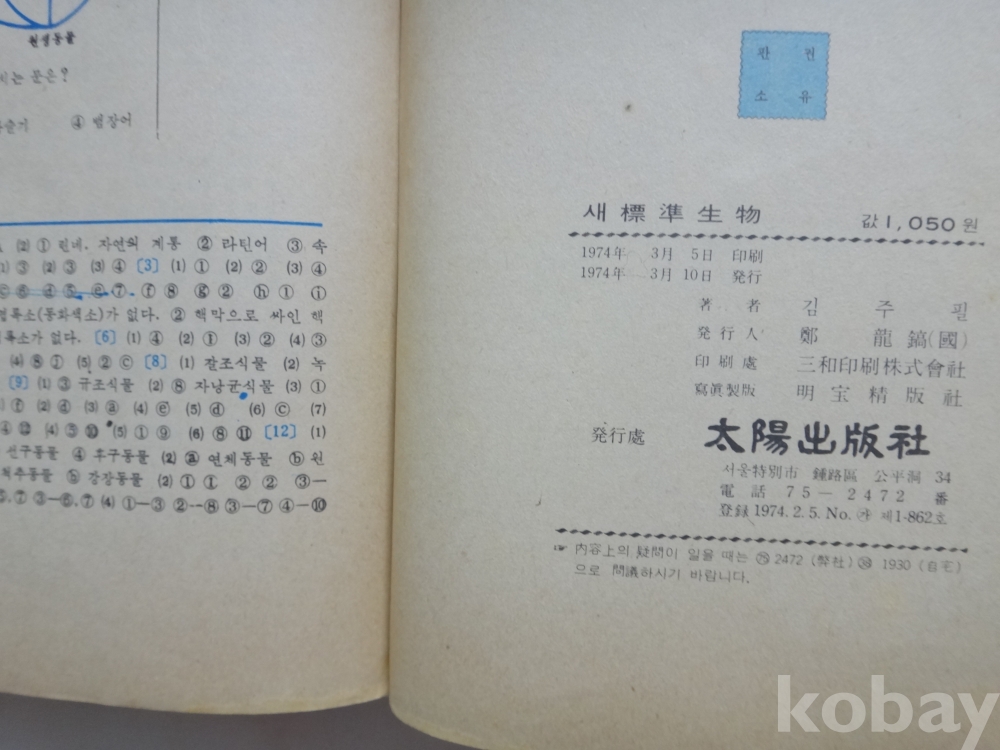 원생동물
는 문은?
④ 뱀장어
(2) ① 린네. 자연의 계통 ② 라틴어 ③ 속
③ (2) ③ (3) ④ [3] (1) ① (2) ② (3) ④
ⓒ ⑥ ⓓ ⑤ ⓔ ⑦ ⓕ ⑧ ⓖ ② ⓗ ① ⓘ
엽록소(동화색소)가 없다. ② 핵막으로 싸인 핵
록소가 없다. [6] (1) ④ (2) ① (3) ② (4) ③
(4) ⑧ ⓙ (5) ② ⓒ [8] (1) 갈조식물 (2) 녹
[9] (1) ③ 규조식물 (2) ⑧ 자낭균식물 (3) ①
ⓕ (2) ⓓ (3) ⓐ (4) ⓔ (5) ⓓ (6) ⓒ (7)
(5) ① ⑨ (6) ⑧ ⑪ [12] (1)
선구동물 ④ 후구동물 (2) ⓐ 연체동물 ⓑ 원
척추동물 ⓑ 강장동물 (2) ① ② ② ③—
⑦ ③—⑥, ⑦ (4) ①—③ ②—⑧ ③—⑦ ④—⑩
판 권
소 유
새 標 準 生 物 값 1,050 원
1974年 3月 5日 印刷
1974年 3月 10日 発行
著 者 김 주 필
発 行 人 鄭 龍 鎬(國)
印 刷 處 三和印刷株式會社
寫眞製版 明 宝 精 版 社
発 行 處 太陽出版社
서울特別市 鍾路區 公平洞 34
電 話 75 — 2472 番
登録 1974. 2. 5. No. ㉮ 제1-862호
☞ 內容上의 疑問이 있을 때는 ㉵ 2472 (弊社) 1930 (自宅)
으로 問議하시기 바랍니다.
kobay